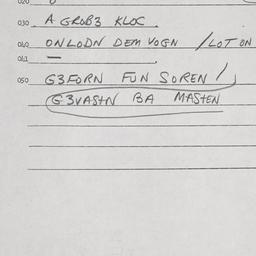 020
030 A GROB3 KLOC
040 ONLODN DEM VOGN /LOT ON
041 —
050 G3FORN FUN SOREN /
G3VASTN BA MASTEN